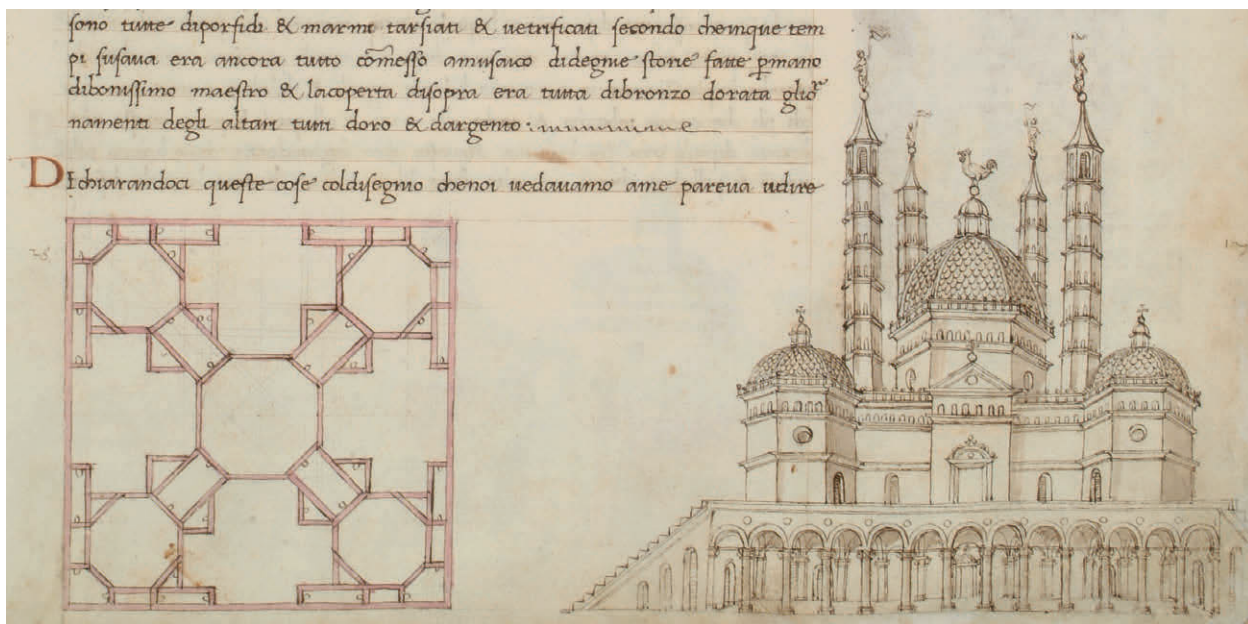 sono tutte diporfidi & marmi tarsiati & uetrificati secondo cheinque tem
pi susaua era ancora tutto com̃esso amusaico didegnie storie fatte ꝑmano
dibonissimo maestro & lacoperta disopra era tutta dibronzo dorata
namenti degli altari tutti doro & dargento
Dichiarandoci queste cose coldisegnio chenoi uedauamo ame pareua udire